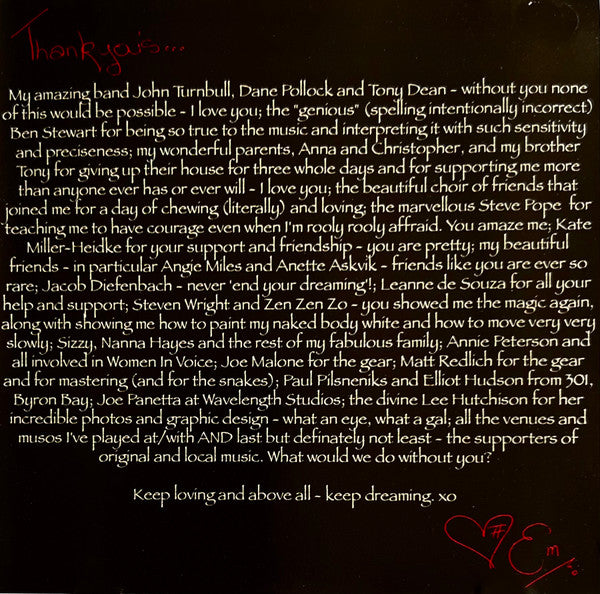 Thankyou's...
My amazing band John Turnbull, Dane Pollock and Tony Dean - without you none
of this would be possible - I love you; the "genious" (spelling intentionally incorrect)
Ben Stewart for being so true to the music and interpreting it with such sensitivity
and preciseness; my wonderful parents, Anna and Christopher, and my brother
Tony for giving up their house for three whole days and for supporting me more
than anyone ever has or ever will - I love you; the beautiful choir of friends that
joined me for a day of chewing (literally) and loving; the marvellous Steve Pope for
teaching me to have courage even when I'm rooly rooly affraid. You amaze me; Kate
Miller-Heidke for your support and friendship - you are pretty; my beautiful
friends - in particular Angie Miles and Anette Askvik - friends like you are ever so
rare; Jacob Diefenbach - never 'end your dreaming'!; Leanne de Souza for all your
help and support; Steven Wright and Zen Zen Zo - you showed me the magic again,
along with showing me how to paint my naked body white and how to move very very
slowly; Sizzy, Nanna Hayes and the rest of my fabulous family; Annie Peterson and
all involved in Women In Voice; Joe Malone for the gear; Matt Redlich for the gear
and for mastering (and for the snakes); Paul Pilsneniks and Elliot Hudson from 301,
Byron Bay; Joe Panetta at Wavelength Studios; the divine Lee Hutchison for her
incredible photos and graphic design - what an eye, what a gal; all the venues and
musos I've played at/with AND last but definately not least - the supporters of
original and local music. What would we do without you?
Keep loving and above all - keep dreaming. xo
Em